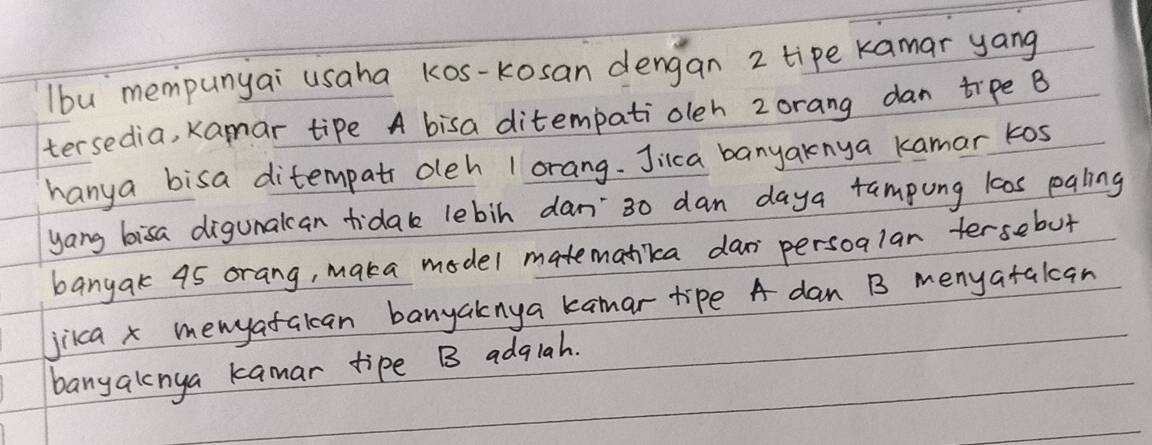 Ibu mempunyai usaha kos-kosan dengan 2 tipe kamar yang
tersedia, kamar tipe A bisa ditempati oleh 2 orang dan tipe B
hanya bisa ditempati oleh 1 orang. Jika banyaknya kamar kos
yang bisa digunakan tidak lebih dari 30 dan daya tampung kos paling
banyak 45 orang, maka model matematika dari persoalan tersebut
jika x menyatakan banyaknya kamar tipe A dan B menyatakan
banyaknya kamar tipe B adalah.